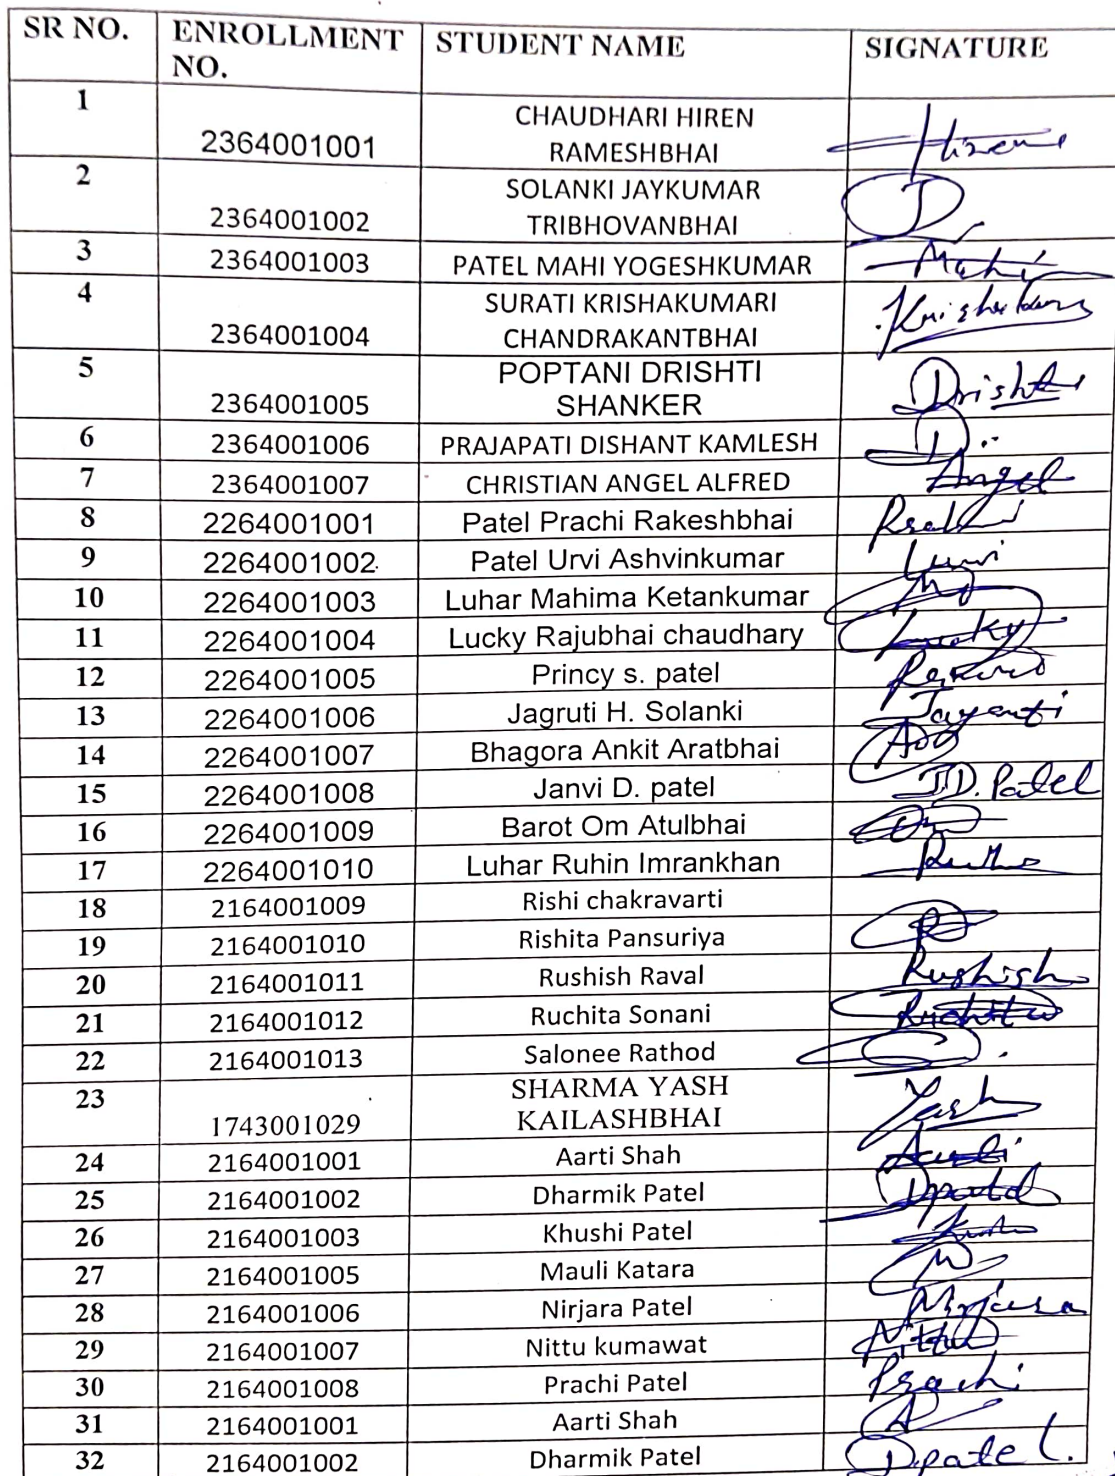 SR NO. ENROLLMENT NO. STUDENT NAME SIGNATURE
1 2364001001 CHAUDHARI HIREN RAMESHBHAI Hiren
2 2364001002 SOLANKI JAYKUMAR TRIBHOVANBHAI J
3 2364001003 PATEL MAHI YOGESHKUMAR Mahi
4 2364001004 SURATI KRISHAKUMARI CHANDRAKANTBHAI
5 2364001005 POPTANI DRISHTI SHANKER Drishti
6 2364001006 PRAJAPATI DISHANT KAMLESH D
7 2364001007 CHRISTIAN ANGEL ALFRED Angel
8 2264001001 Patel Prachi Rakeshbhai
9 2264001002 Patel Urvi Ashvinkumar Urvi
10 2264001003 Luhar Mahima Ketankumar
11 2264001004 Lucky Rajubhai chaudhary Lucky
12 2264001005 Princy s. patel
13 2264001006 Jagruti H. Solanki
14 2264001007 Bhagora Ankit Aratbhai
15 2264001008 Janvi D. patel J.D. Patel
16 2264001009 Barot Om Atulbhai Om
17 2264001010 Luhar Ruhin Imrankhan
18 2164001009 Rishi chakravarti
19 2164001010 Rishita Pansuriya R
20 2164001011 Rushish Raval Rushish
21 2164001012 Ruchita Sonani Ruchita
22 2164001013 Salonee Rathod
23 1743001029 SHARMA YASH KAILASHBHAI Yash
24 2164001001 Aarti Shah Aarti
25 2164001002 Dharmik Patel Dpatel
26 2164001003 Khushi Patel
27 2164001005 Mauli Katara
28 2164001006 Nirjara Patel Nirjara
29 2164001007 Nittu kumawat Nittu
30 2164001008 Prachi Patel Prachi
31 2164001001 Aarti Shah A
32 2164001002 Dharmik Patel Dpatel.